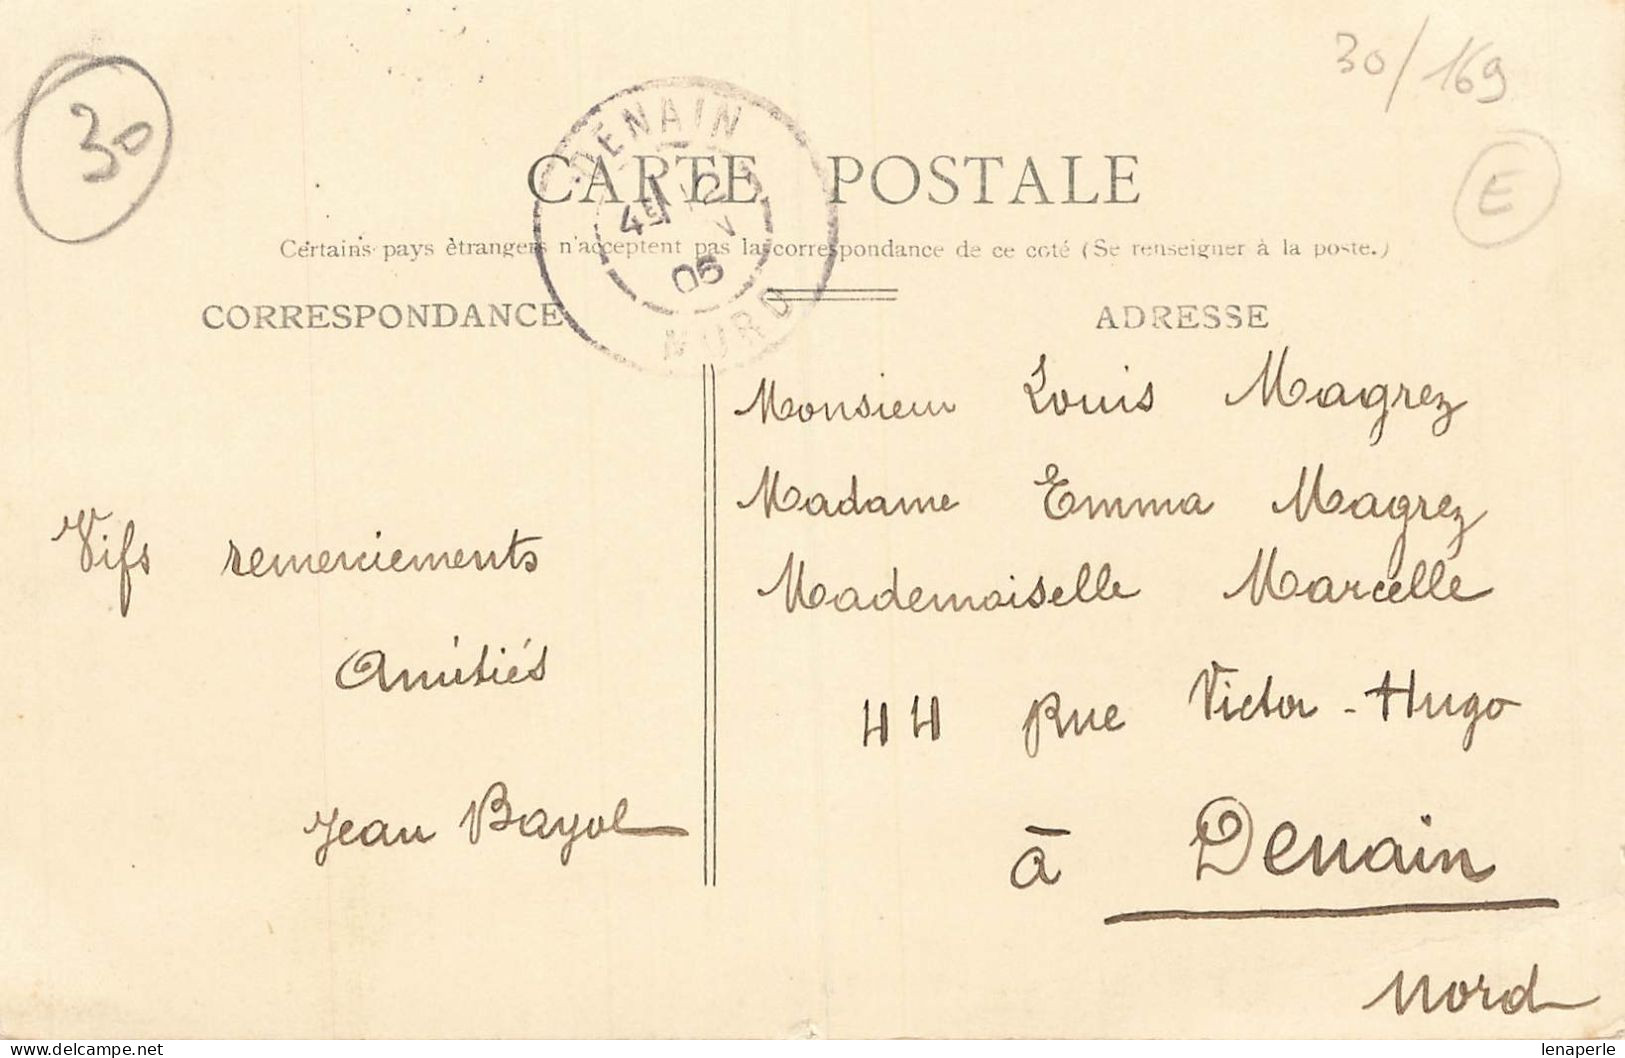 30
30/169
E
DENAIN
4E 12
05
NORD
CARTE POSTALE
Certains pays étrangers n'acceptent pas la correspondance de ce coté (Se renseigner à la poste.)
CORRESPONDANCE
Vifs remerciements
Amitiés
Jean Bayol
ADRESSE
Monsieur Louis Magrez
Madame Emma Magrez
Mademoiselle Marcelle
44 Rue Victor-Hugo
à Denain
Nord
lenaperle